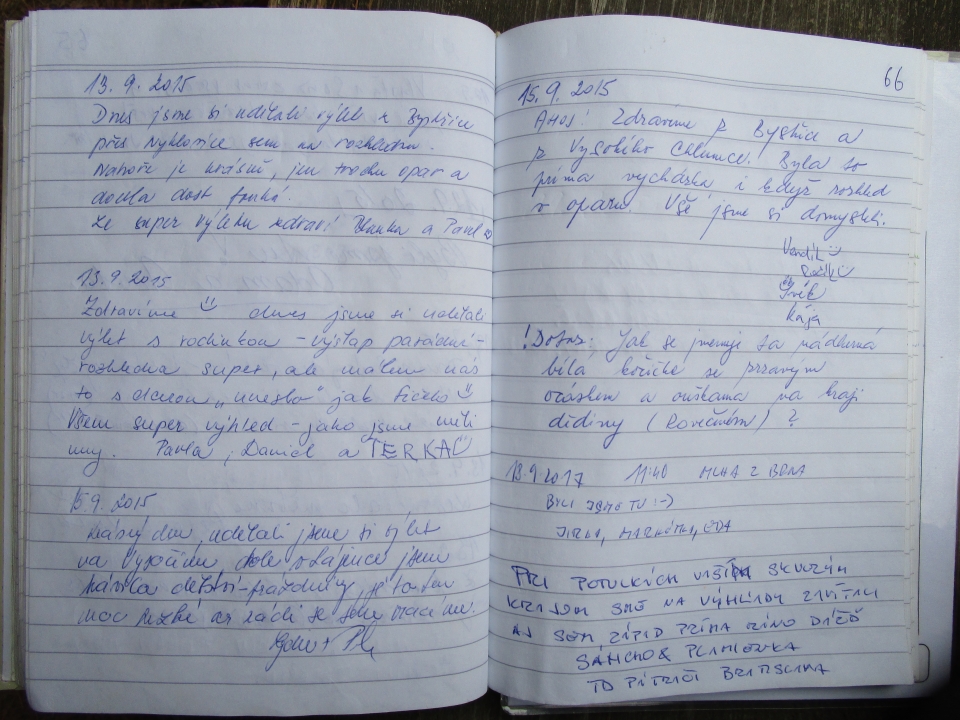 13.9.2015
Dnes jsme si udělali výlet z Bystřice
přes sem na rozhlednu.
Nahoře je krásně, jen trochu opar a
docela dost fouká.
Ze super výletu zdraví Blanka a Pavel
13.9.2015
Zdravíme dnes jsme si udělali
výlet s rodinkou - výstap parádní -
rozhledna super, ale málem nás
to s dcerou „uneslo" jak
Všem super výhled - jako jsme měli
my. Pavla, Daniel a TERKA
15.9.2015
Krásný den, udělali jsme si výlet
na Vysočinu, dole v jsem
je to tu
moc hezké a rádi se sem vracíme.
66
15.9.2015
AHOJ! Zdravíme z Bystřice a
z Vysokého Chlumce! Byla to
príma vycházka i když rozhled
v oparu. Vše jsme si domysleli.
Vendík
Kája
! Dotaz: Jak se jmenuje ta nádherná
bílá kočička se zrzavým
ocáskem a ouškama na kraji
dědiny (Rovečného)?
18.9.2017 11:40 MLHA Z BRNA
BYLI JSME TU :-)
JIRKA, MARKÉTKA, EDA
PRI POTULKÁCH VAŠÍM SKVELÝM
KRAJOM SME NA VÝHLIADY ZAVÍTALI
AJ SEM ZÁPAD ZIMA DÁŽĎ
SANCHO & PLAMIENKA
TO PÁTRAČI BRATISLAVA